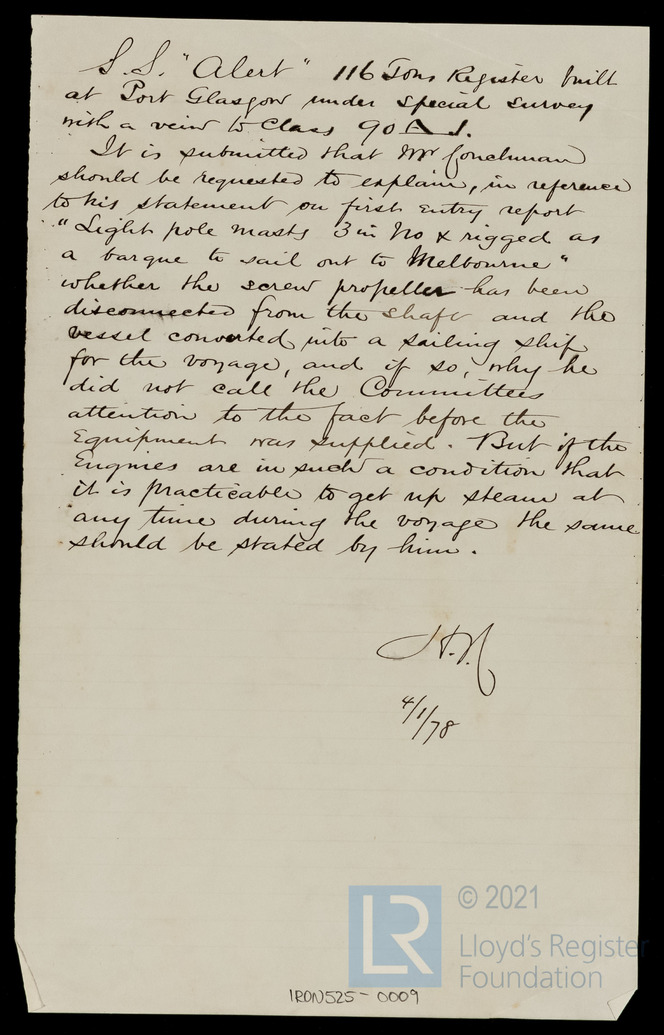 S.S. "Alert" 116 Tons Register built
at Port Glasgow under special survey
with a veiw to Class 90 A 1.
It is submitted that Mr Conchman
should be requested to explain, in reference
to his statement on first entry report
"Light pole masts 3 in No & rigged as
a barque to sail out to Melbourne"
whether the screw propeller has been
disconnected from the shaft and the
vessel converted into a sailing ship
for the voyage, and if so, why he
did not call the Committees
attention to the fact before the
Equipment was supplied. But if the
Engines are in such a condition that
it is practicable to get up steam at
any time during the voyage the same
should be stated by him.
4/1/78
LR
© 2021
Lloyd's Register
Foundation
IRON525-0009